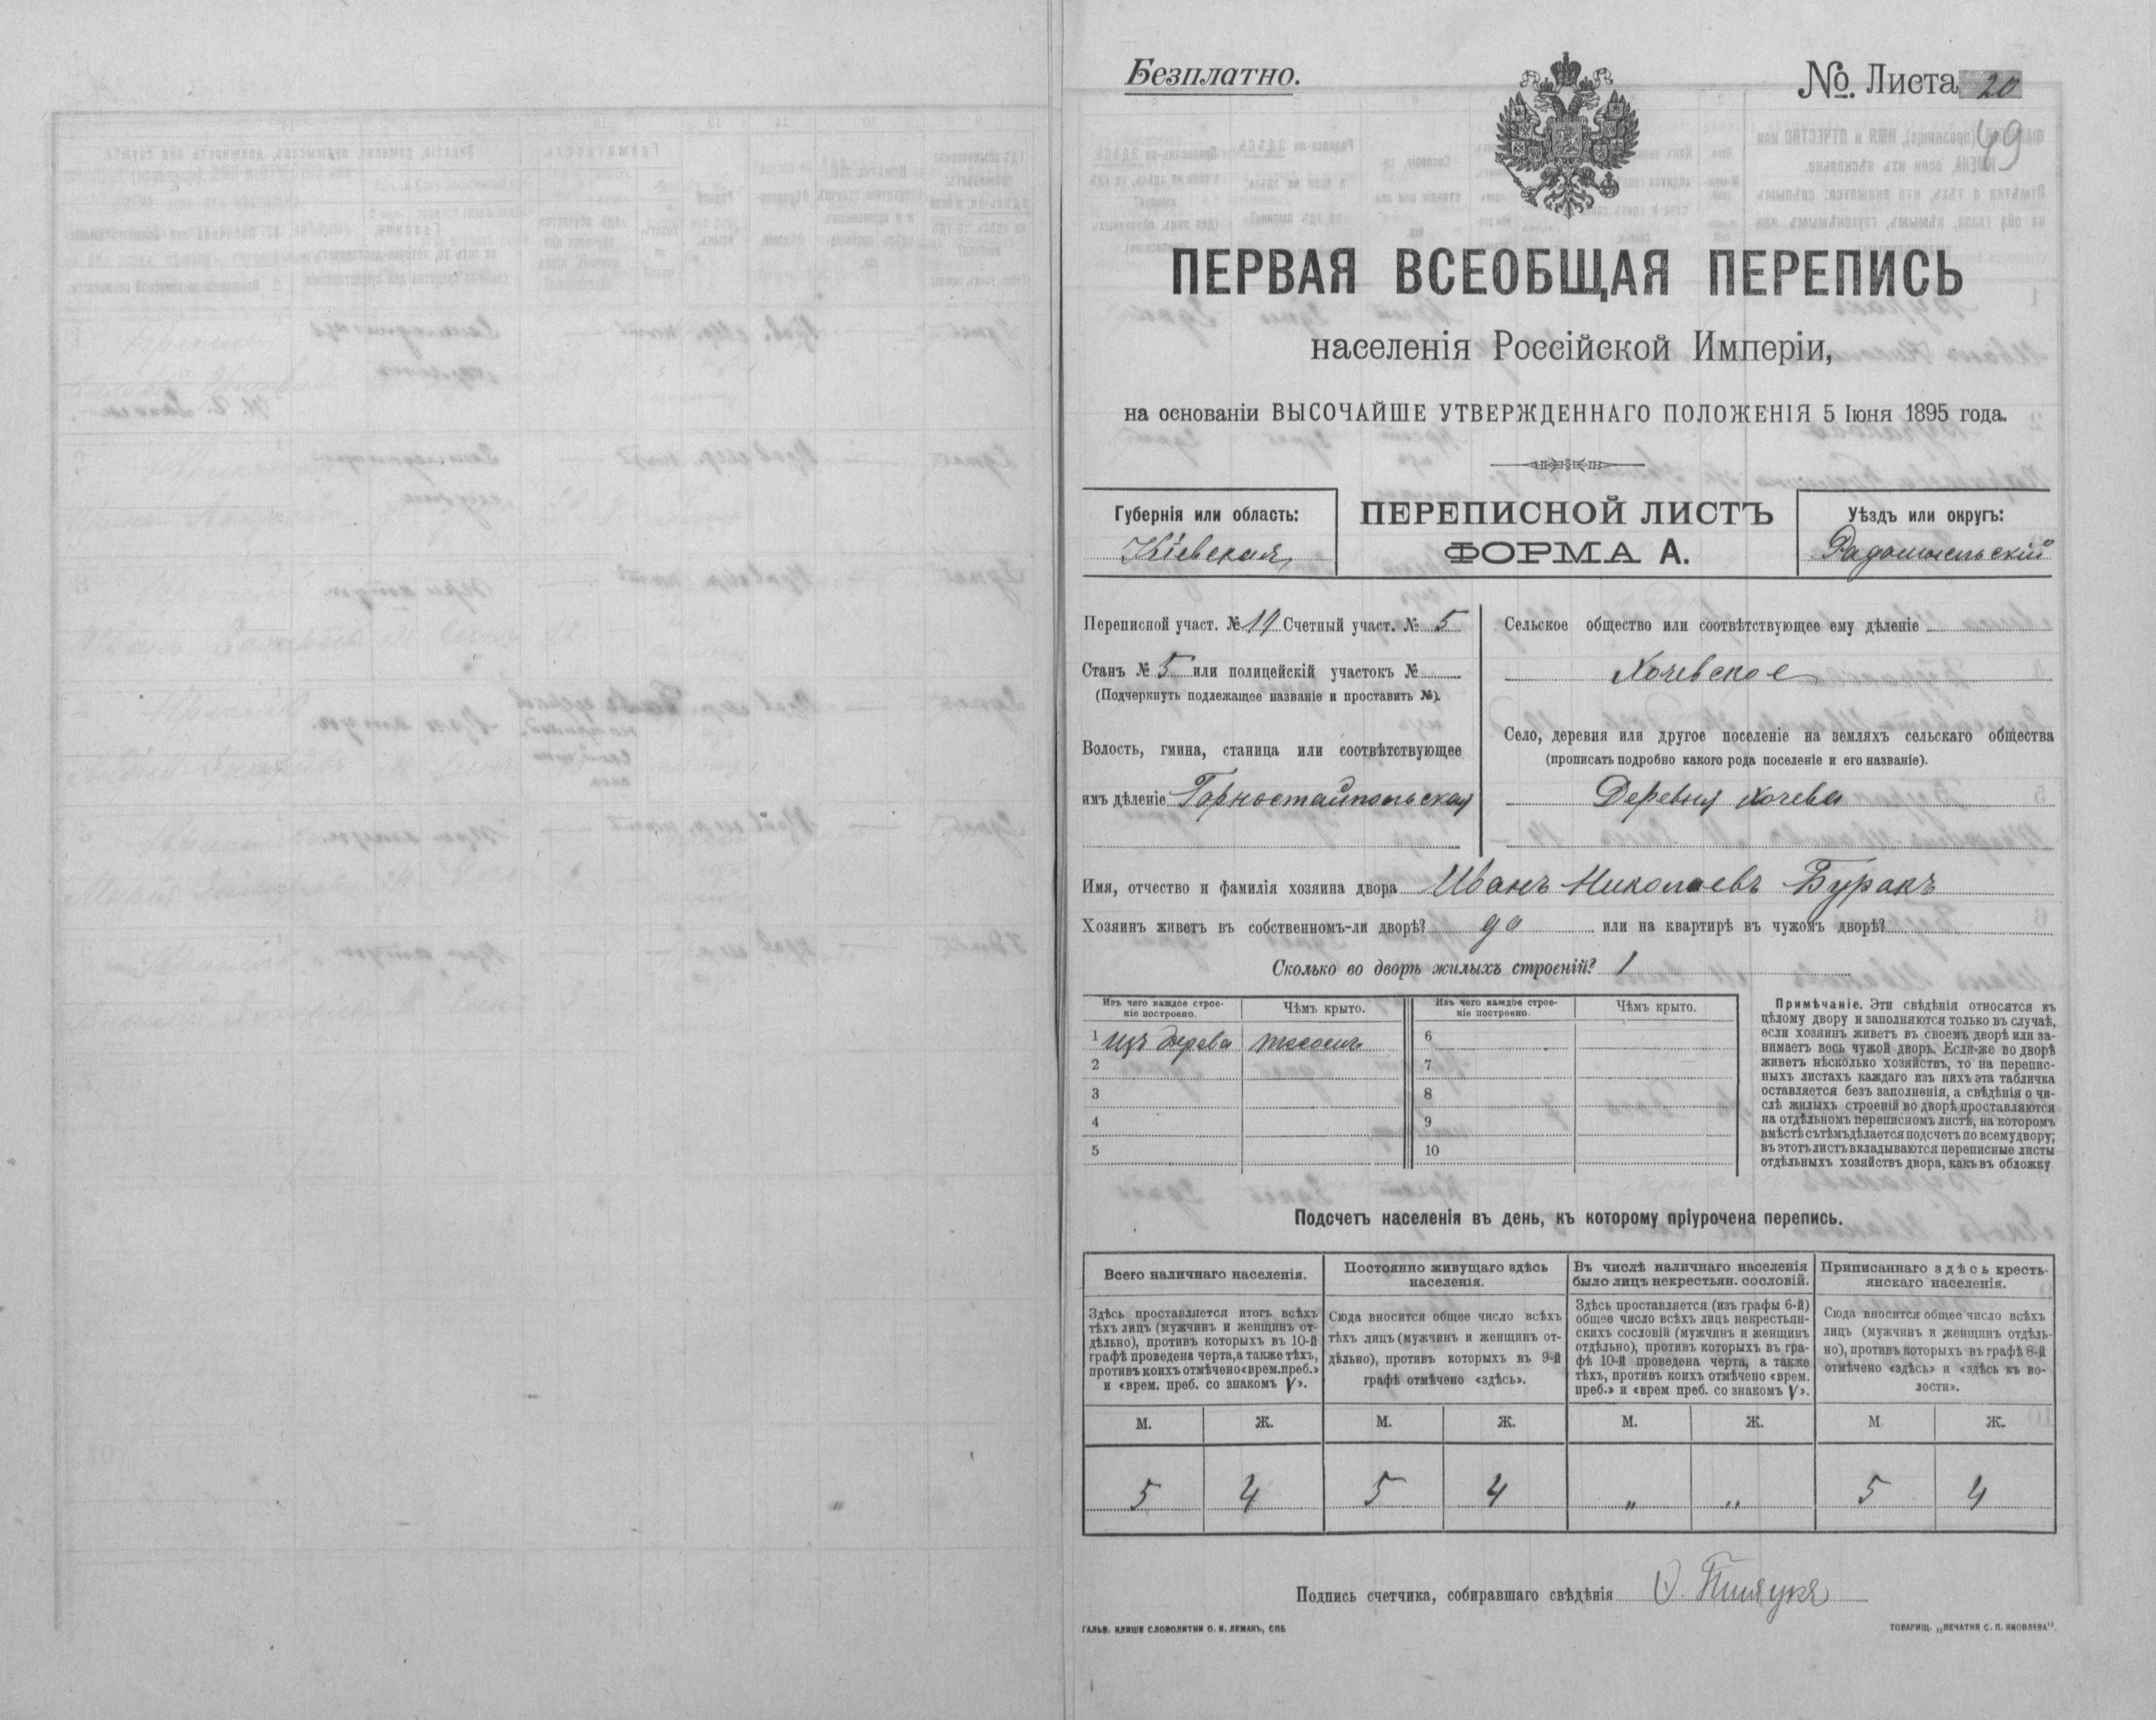 Безплатно.
№. Листа 20
49
ПЕРВАЯ ВСЕОБЩАЯ ПЕРЕПИСЬ
населенія Россійской Имперіи,
на основаніи ВЫСОЧАЙШЕ УТВЕРЖДЕННАГО ПОЛОЖЕНІЯ 5 Іюня 1895 года.
Губернія или область:
Кіевская
ПЕРЕПИСНОЙ ЛИСТЪ
ФОРМА А.
Уѣздъ или округъ:
Радомысльскій
Переписной участ. № 19 Счетный участ. № 5
Станъ № 5 или полицейскій участокъ №
(Подчеркнуть подлежащее названіе и проставить №).
Волость, гмина, станица или соотвѣтствующее
имъ дѣленіе Горностайпольская
Сельское общество или соотвѣтствующее ему дѣленіе
Хочевское
Село, деревня или другое поселеніе на земляхъ сельскаго общества
(прописать подробно какого рода поселеніе и его названіе).
Деревня Хочева
Имя, отчество и фамилія хозяина двора Иванъ Николаевъ Буракъ
Хозяинъ живетъ въ собственномъ-ли дворѣ? да или на квартирѣ въ чужомъ дворѣ?
Сколько во дворѣ жилыхъ строеній? 1
Изъ чего каждое строе-
ніе построено.
Чѣмъ крыто.
Изъ чего каждое строе-
ніе построено.
Чѣмъ крыто.
1 изъ дерева тесомъ 6
2 7
3 8
4 9
5 10
Примѣчаніе. Эти свѣдѣнія относятся къ
цѣлому двору и заполняются только въ случаѣ,
если хозяинъ живетъ въ своемъ дворѣ или за-
нимаетъ весь чужой дворъ. Если-же во дворѣ
живетъ нѣсколько хозяйствъ, то на перепис-
ныхъ листахъ каждаго изъ нихъ эта табличка
оставляется безъ заполненія, а свѣдѣнія о чи-
слѣ жилыхъ строеній во дворѣ проставляются
на отдѣльномъ переписномъ листѣ, на которомъ
вмѣстѣ съ тѣмъ дѣлается подсчетъ по всему двору;
въ этотъ листъ вкладываются переписные листы
отдѣльныхъ хозяйствъ двора, какъ въ обложку.
Подсчетъ населенія въ день, къ которому пріурочена перепись.
Всего наличнаго населенія.
Здѣсь проставляется итогъ всѣхъ
тѣхъ лицъ (мужчинъ и женщинъ от-
дѣльно), противъ которыхъ въ 10-й
графѣ проведена черта, а также тѣхъ,
противъ коихъ отмѣчено «врем. преб.»
и «врем. преб. со знакомъ V».
Постоянно живущаго здѣсь
населенія.
Сюда вносится общее число всѣхъ
тѣхъ лицъ (мужчинъ и женщинъ от-
дѣльно), противъ которыхъ въ 9-й
графѣ отмѣчено «здѣсь».
Въ числѣ наличнаго населенія
было лицъ некрестьян. сословій.
Здѣсь проставляется (изъ графы 6-й)
общее число всѣхъ лицъ некрестьян-
скихъ сословій (мужчинъ и женщинъ
отдѣльно), противъ которыхъ въ гра-
фѣ 10-й проведена черта, а также
тѣхъ, противъ коихъ отмѣчено «врем.
преб.» и «врем преб. со знакомъ V».
Приписаннаго здѣсь кресть-
янскаго населенія.
Сюда вносится общее число всѣхъ
лицъ (мужчинъ и женщинъ отдѣль-
но), противъ которыхъ въ графѣ 8-й
отмѣчено «здѣсь» и «здѣсь къ во-
лости».
М. Ж. М. Ж. М. Ж. М Ж.
5 4 5 4 „ „ 5 4
Подпись счетчика, собиравшаго свѣдѣнія
ГАЛЬВ. КЛИШЕ СЛОВОЛИТНИ О. И. ЛЕМАНЪ, СПБ
ТОВАРИЩ. „ПЕЧАТНЯ С. П. ЯКОВЛЕВА“.